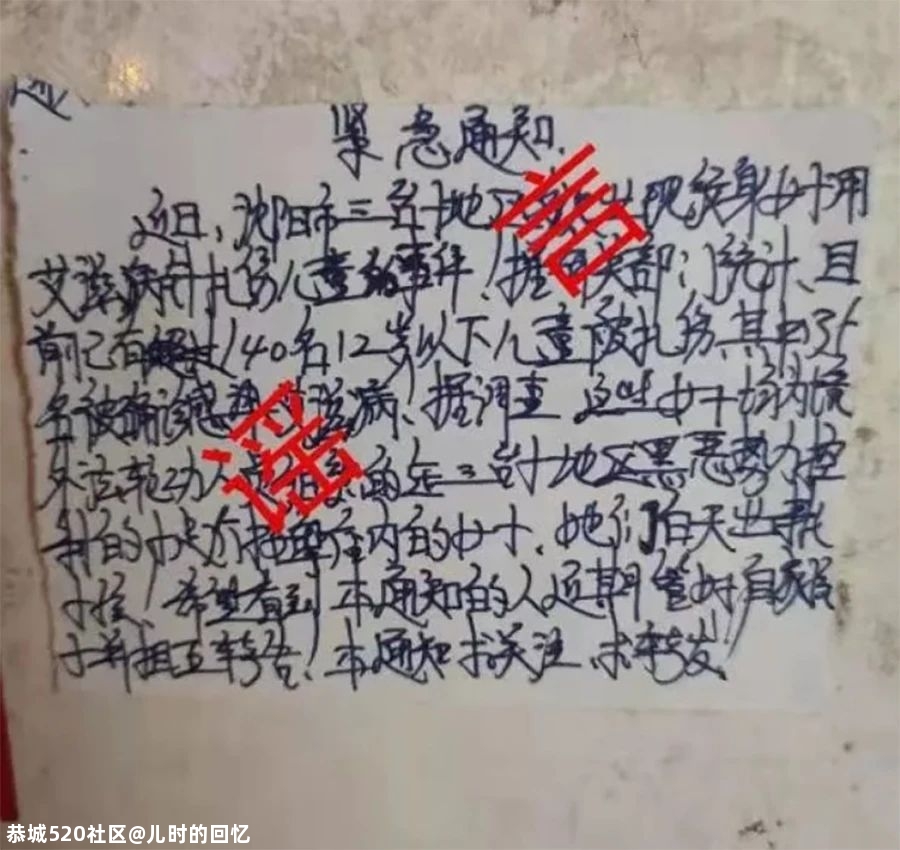 紧急通知.
近日,沈阳市三台子地区 出现纹身女子用
艾滋病针扎伤儿童的事件!据 关部门统计、目
前已有 140名12岁以下儿童被扎伤,其中35
名被确诊感染艾滋病!据调查 这些女子均为境
外法轮功人 的在三台子地区黑恶势力控
制的 内的女子、她们白天出来
!希望看到本通知的人近期管好自家孩
子并相互转告!本通知求关注、求转发!
谣言
恭城520社区@儿时的回忆